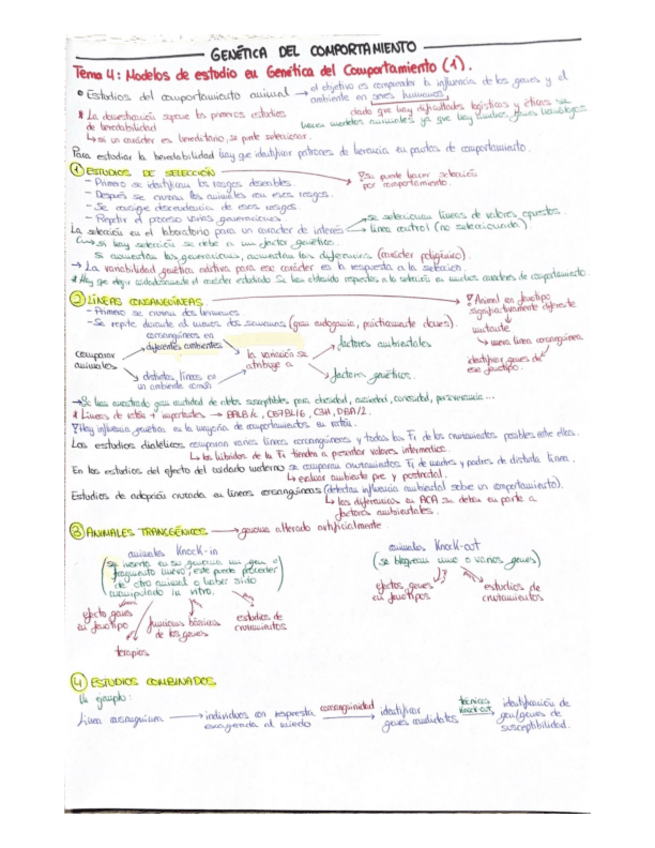 GENÉTICA DEL COMPORTAMIENTO
Tema 4: Modelos de estudio en Genética del Comportamiento (1).
Estudios del comportamiento animal → el objetivo es comprender la influencia de los genes y el
ambiente en seres humanos,
dado que hay dificultades logísticas y éticas se
modelos animales ya que hay muchos genes homólogos
* La domesticación supuso los primeros estudios
de heredabilidad
↳ si un carácter es hereditario, se puede seleccionar.
Para estudiar la heredabilidad hay que identificar patrones de herencia en pautas de comportamiento.
① ESTUDIOS DE SELECCIÓN
se puede hacer selección
por comportamiento.
- Primero se identifican los rasgos deseables.
- Después se cruzan los animales con esos rasgos.
- Se consigue descendencia de esos rasgos.
- Repetir el proceso varias generaciones.
La selección en el laboratorio para un carácter de interés
se seleccionan líneas de valores opuestos.
línea control (no seleccionada).
↳ si hay selección se debe a un factor genético.
Si aumentan las generaciones, aumentan las diferencias (carácter poligénico).
→ La variabilidad genética aditiva para ese carácter es la respuesta a la selección.
* Hay que elegir cuidadosamente el carácter estudiado. Se han obtenido respuestas a la selección en muchos caracteres de comportamiento.
② LÍNEAS CONSANGUÍNEAS
- Primero se cruzan dos hermanos.
- Se repite durante al menos dos semanas (gran endogamia, prácticamente clones).
Animal con fenotipo
significativamente diferente
mutante
nueva línea consanguínea
identificar genes de
ese fenotipo.
comparar
animales
consanguíneos en
diferentes ambientes
distintas líneas en
un ambiente común
la variación se
atribuye a
factores ambientales
factores genéticos.
→ Se han encontrado gran cantidad de ratones susceptibles para obesidad, ansiedad, curiosidad,
* Líneas de ratón + importantes → BALB/c, C57BL/6, C3H, DBA/2.
Hay influencia genética en la mayoría de comportamientos en ratón.
Los estudios dialélicos comparan varias líneas consanguíneas y todas las F1 de los cruzamientos posibles entre ellas.
↳ los híbridos de la F1 tienden a presentar valores intermedios.
En los estudios del efecto del cuidado materno se comparan cruzamientos F1 de madres y padres de distinta línea.
↳ evaluar ambiente pre y postnatal.
Estudios de adopción cruzada en líneas consanguíneas (detectan influencia ambiental sobre un comportamiento).
↳ las diferencias en ACA se deben en parte a
factores ambientales.
③ ANIMALES TRANSGÉNICOS → genoma alterado artificialmente.
animales Knock-in
(se inserta en su genoma un gen o
fragmento nuevo, este puede proceder
de otro animal o haber sido
manipulado in vitro.)
efecto genes
en fenotipo
terapias
funciones básicas
de los genes
estudios de
cruzamientos
animales Knock-out
(se bloquean uno o varios genes)
efectos genes
en fenotipos
estudios de
cruzamientos
④ ESTUDIOS COMBINADOS
Un ejemplo:
Línea consanguínea → individuos con respuesta
exagerada al miedo
consanguinidad
identificar
genes candidatos
técnicas
Knock-out
identificación de
gen/genes de
susceptibilidad.